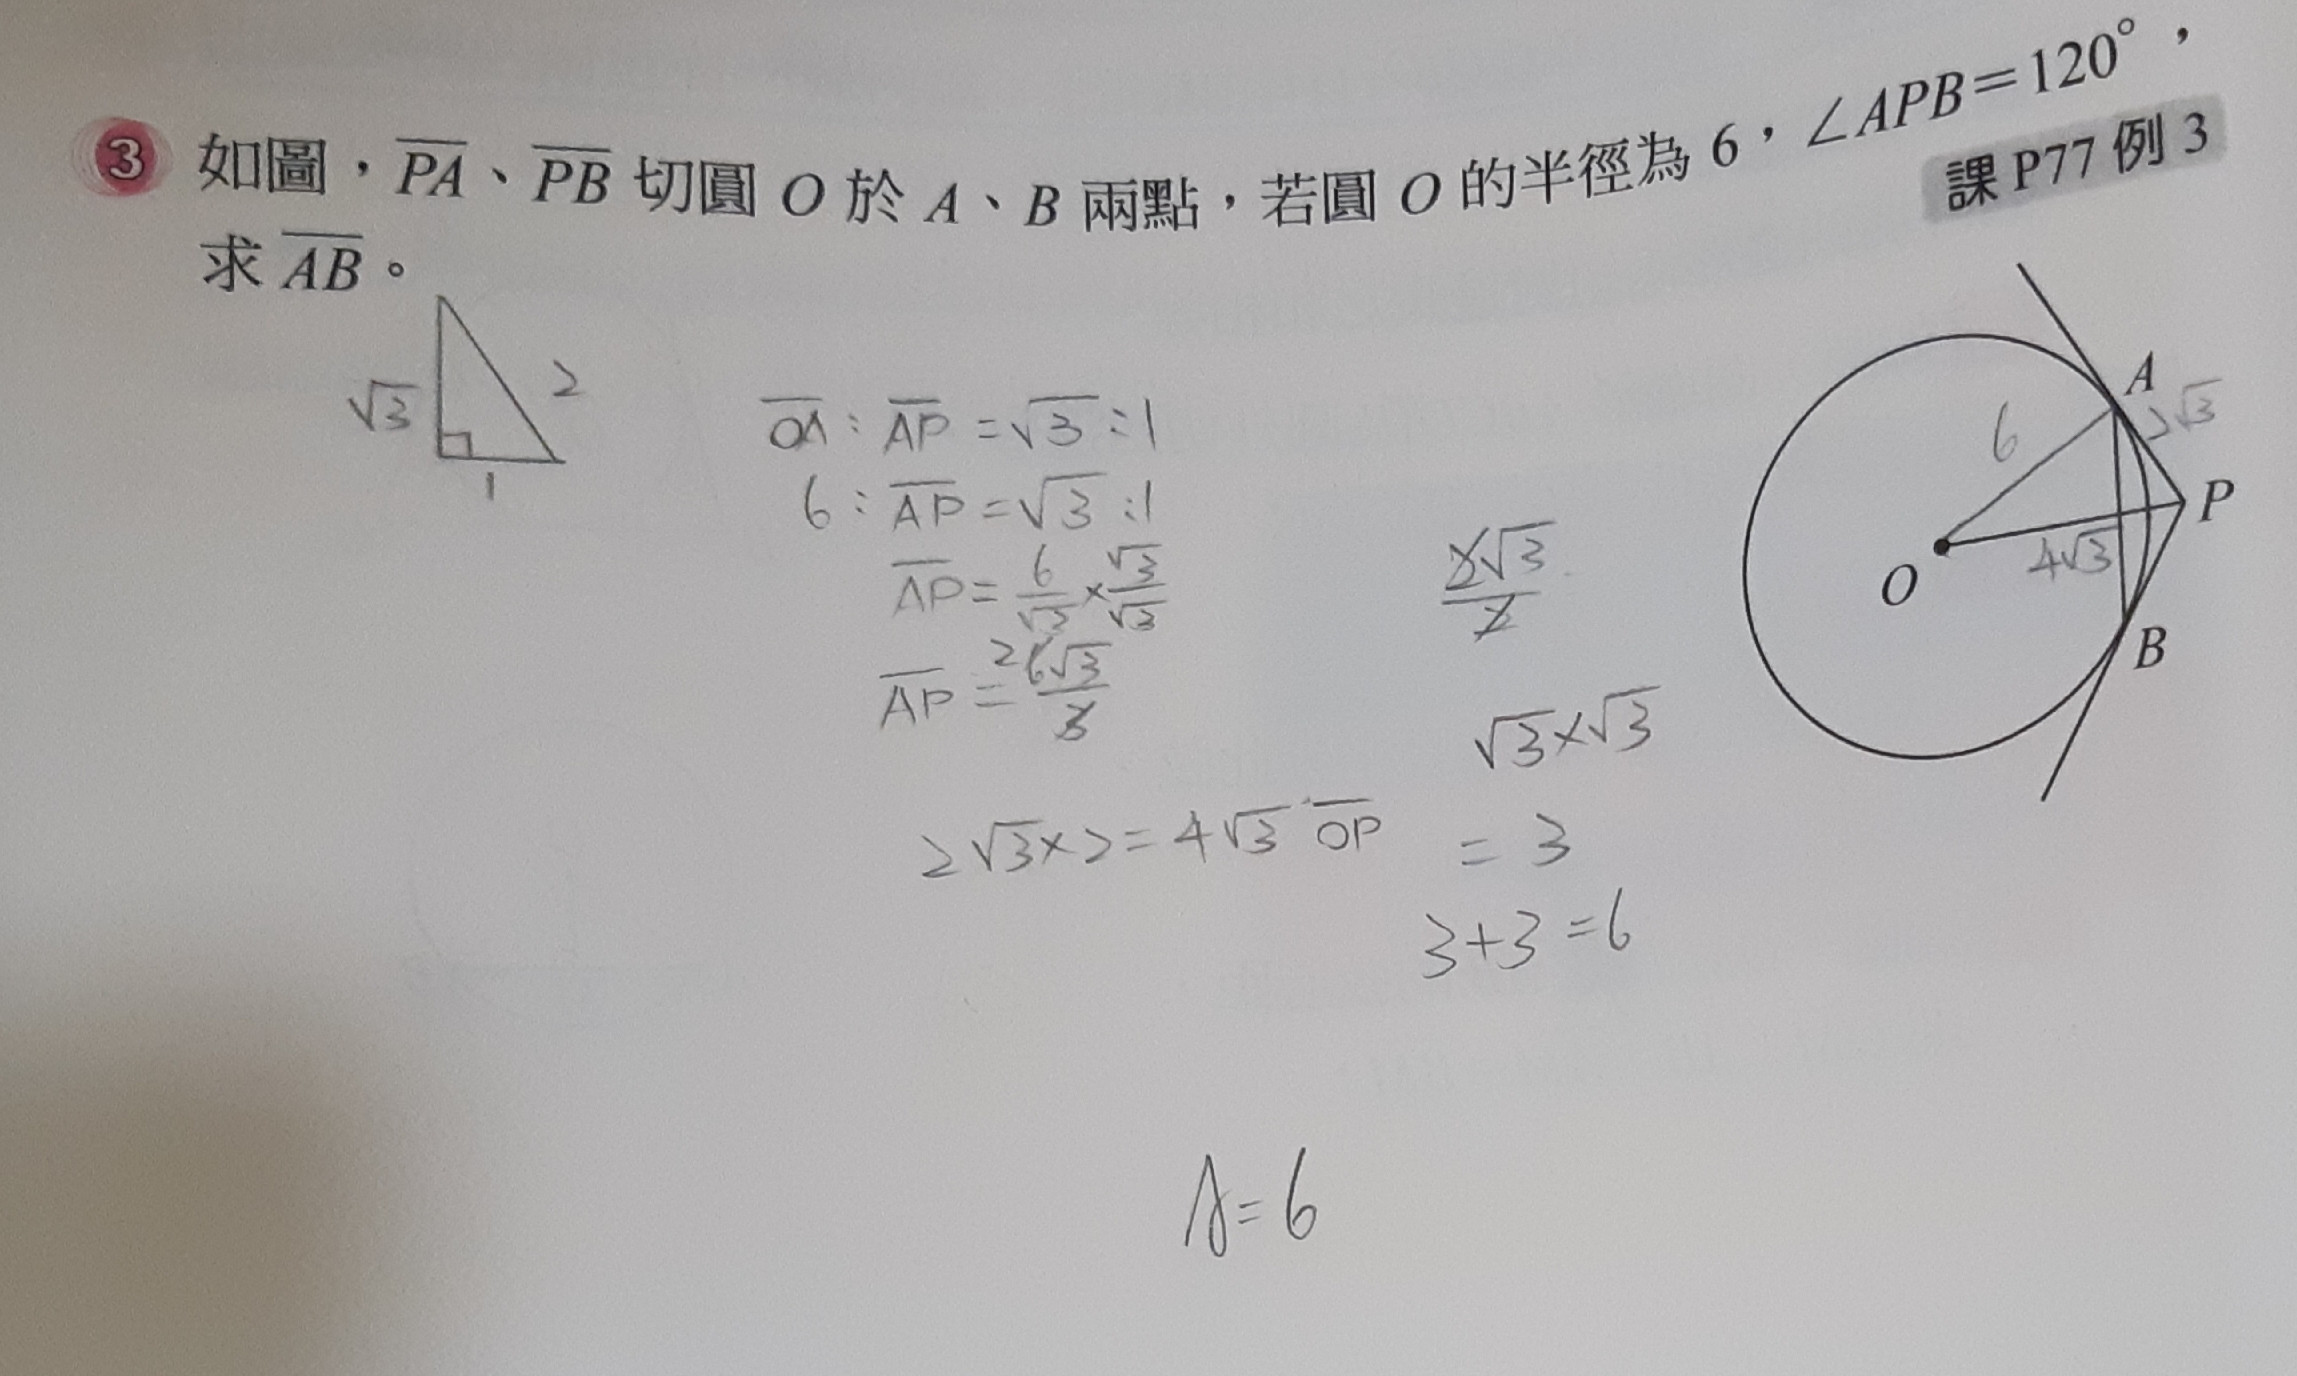 3 如圖，PA、PB 切圓 O 於 A、B 兩點，若圓 O 的半徑為 6，∠APB=120°，
求 AB。
課 P77 例 3
√3
2
1
OA : AP = √3 : 1
6 : AP = √3 : 1
AP = 6/√3 × √3/√3
AP = 2 6√3/3
2√3×2 = 4√3 OP
2√3/2
√3×√3
= 3
3+3=6
A=6
A
2√3
6
P
4√3
O
B